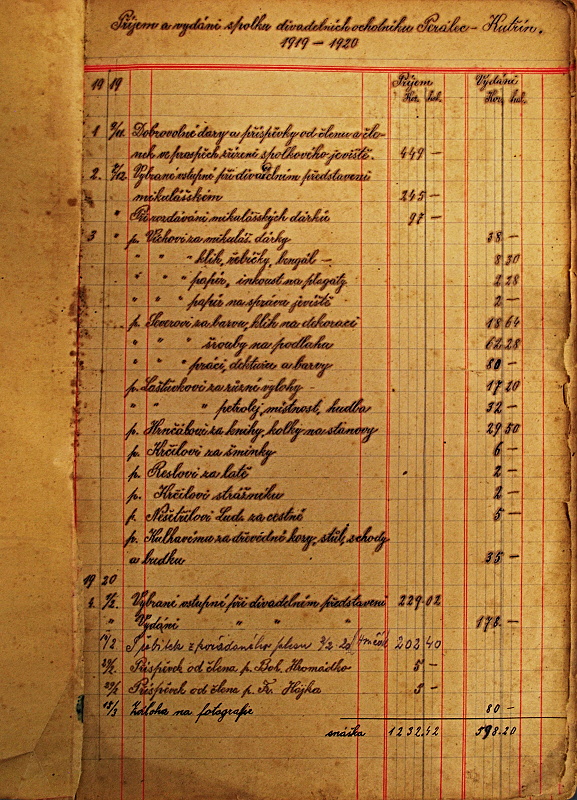 Příjem a vydání spolku divadelních ochotníků Perálec – Kutřín.
1919 – 1920
Příjem Vydání
1919 Kor. hal. Kor. hal.
1 9/11 Dobrovolné dary a příspěvky od členu a čle-
nek ve prospěch zřízení spolkového jeviště. 449 –
2. 7/12 Vybrané vstupné při divadelním představení
mikulášském 245 –
" Při rozdávání mikulášských dárků 97 –
3 " p. Víchovi za mikuláš. dárky 38 –
" " " klih, řebíčky, bengál – 8 30
" " " papír, inkoust na plagáty 2 28
" " " papír na správa jeviště 2 –
p. Severovi za barvu, klih na dekoraci 18 64
" " " šrouby na podlahu 62 28
" " " práci, dekturu a barvy 80 –
p. Laštuvkovi za různé výlohy – 17 20
" " " petrolej, místnost, hudba 32 –
p. Hrnčálovi za knihy, kolky na stanovy 29 50
p. Krčilovi za šminky 6 –
p. Reslovi za latě 2 –
p. Krčilovi strážníku 2 –
p. Nešetřilovi Lud. za cestné 5 –
p. Kulhavému za dřevěné kozy, stůl, schody
a budku 35 –
1920
4. 1/2. Vybrané vstupné při divadelném představení 229.02
" Vydání " " " 178 –
14/2 Přebytek z pořádaného plesu 7/2 20 202 40
20/2 Příspěvek od člena p. Boh. Hromádko 5 –
20/2 Příspěvek od člena p. Fr. Hájka 5 –
18/3 Záloha na fotografie 80 –
snáška 1232.42 598.20